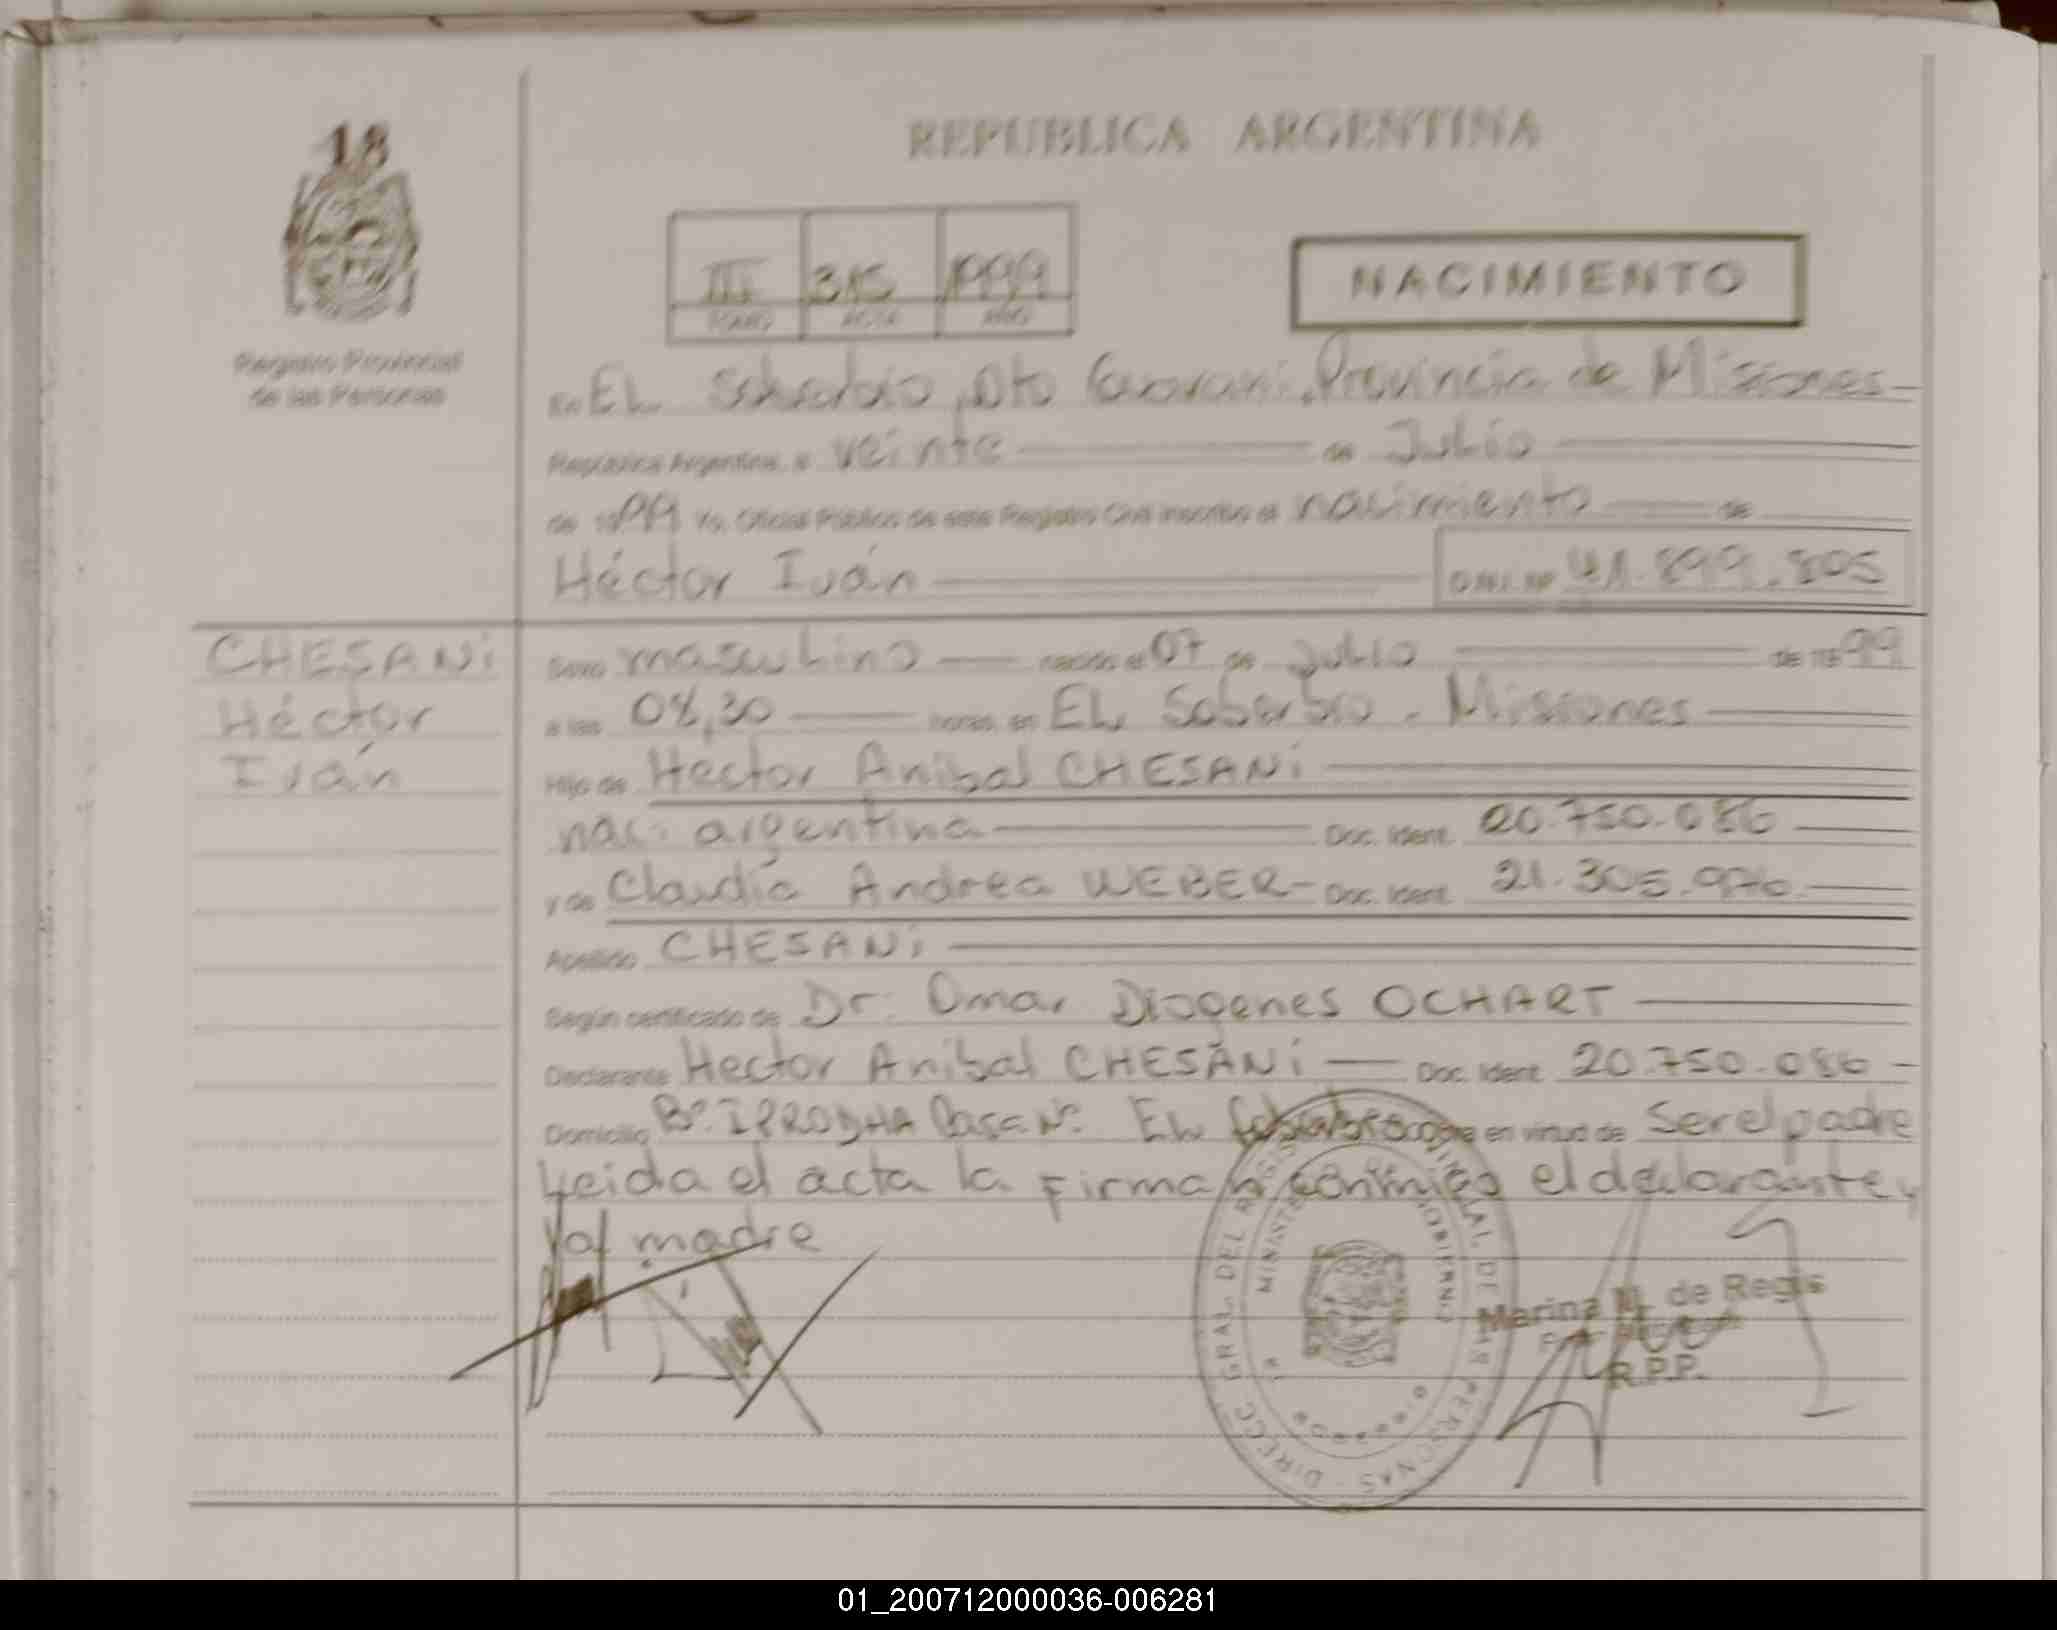 18
REPUBLICA ARGENTINA
III 315 1999
TOMO ACTA AÑO
NACIMIENTO
Registro Provincial
de las Personas
En EL Soberbio, Dto Guaraní, Provincia de Misiones
República Argentina, a veinte de Julio
de 1999 Yo, Oficial Público de este Registro Civil inscribo el nacimiento de
Héctor Iván D.N.I. Nº 41.899.805
CHESANi
Héctor
Iván
Sexo masculino nacido el 07 de Julio de 1999
a las 08,30 horas en EL Soberbio - Misiones
Hijo de Hector Anibal CHESANi
nac. argentina Doc. Ident. 20.750.086
y de Claudia Andrea WEBER - Doc. Ident. 21.305.976
Apellido CHESANi
Según certificado de Dr. Omar Diogenes OCHART
Declarante Hector Anibal CHESANi Doc. Ident. 20.750.086
Domicilio Bº. IPRODHA Casa Nº. EL Soberbio obra en virtud de ser el padre
Leida el acta la firman conmigo el declarante y
la madre
DIRECC. GRAL. DEL REGISTRO PROVINCIAL DE LAS PERSONAS
MINISTERIO DE GOBIERNO
Marina N. de Regis
R.P.P.
01_200712000036-006281